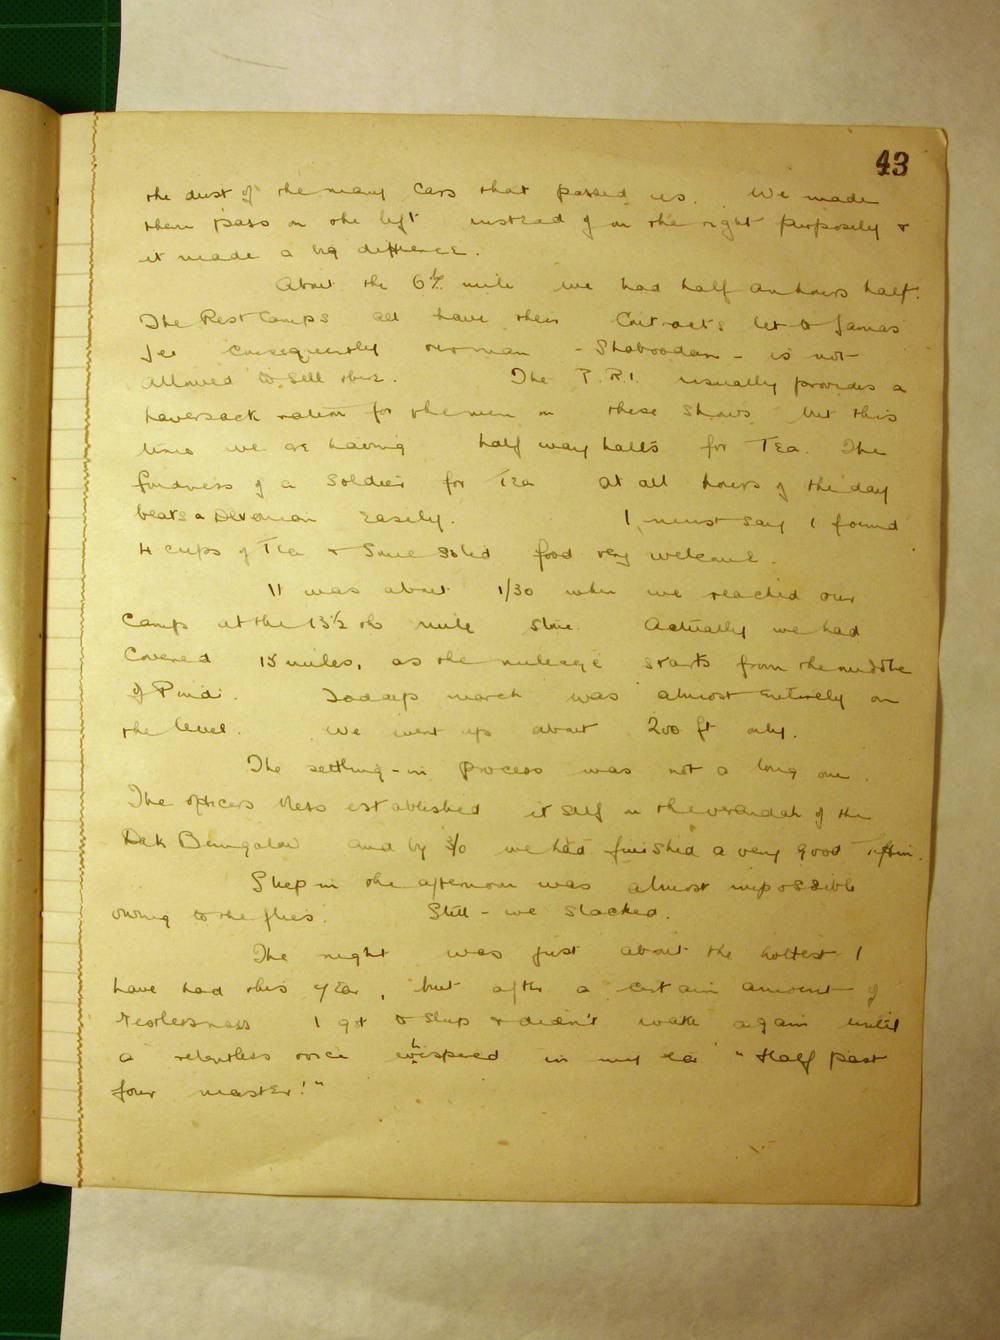 43
the dust of the many cars that passed us. We made
them pass on the left instead of on the right purposely &
it made a big diffrence.
About the 6½ mile we had half an hours halt.
The Rest Camps all have their Contracts let to
consequently our man - - is not
allowed to sell there. The usually provides a
haversack ration for the men on these shows but this
time we are having half way halts for Tea. The
fondness of a Soldier for Tea at all hours of the day
beats a Devonian easily. I must say I found
4 cups of Tea & Some solid food very welcome.
It was about 1/30 when we reached our
Camp at the 13½ mile stone. Actually we had
Covered 15 miles, as the mileage starts from the middle
of Pindi. Todays march was almost entirely on
the level. We went up about 200 ft only.
The settling-in process was not a long one.
The officers Mess established itself in the verandah of the
Dak Bungalow and by we had finished a very good Tiffin.
Sleep in the afternoon was almost impossible
owing to the flies. Still - we slacked.
The night was just about the hottest I
have had this year, but after a certain amount of
restlessness I got to sleep & didn't wake again until
a relentless voice whispered in my ear "Half past
four master!"